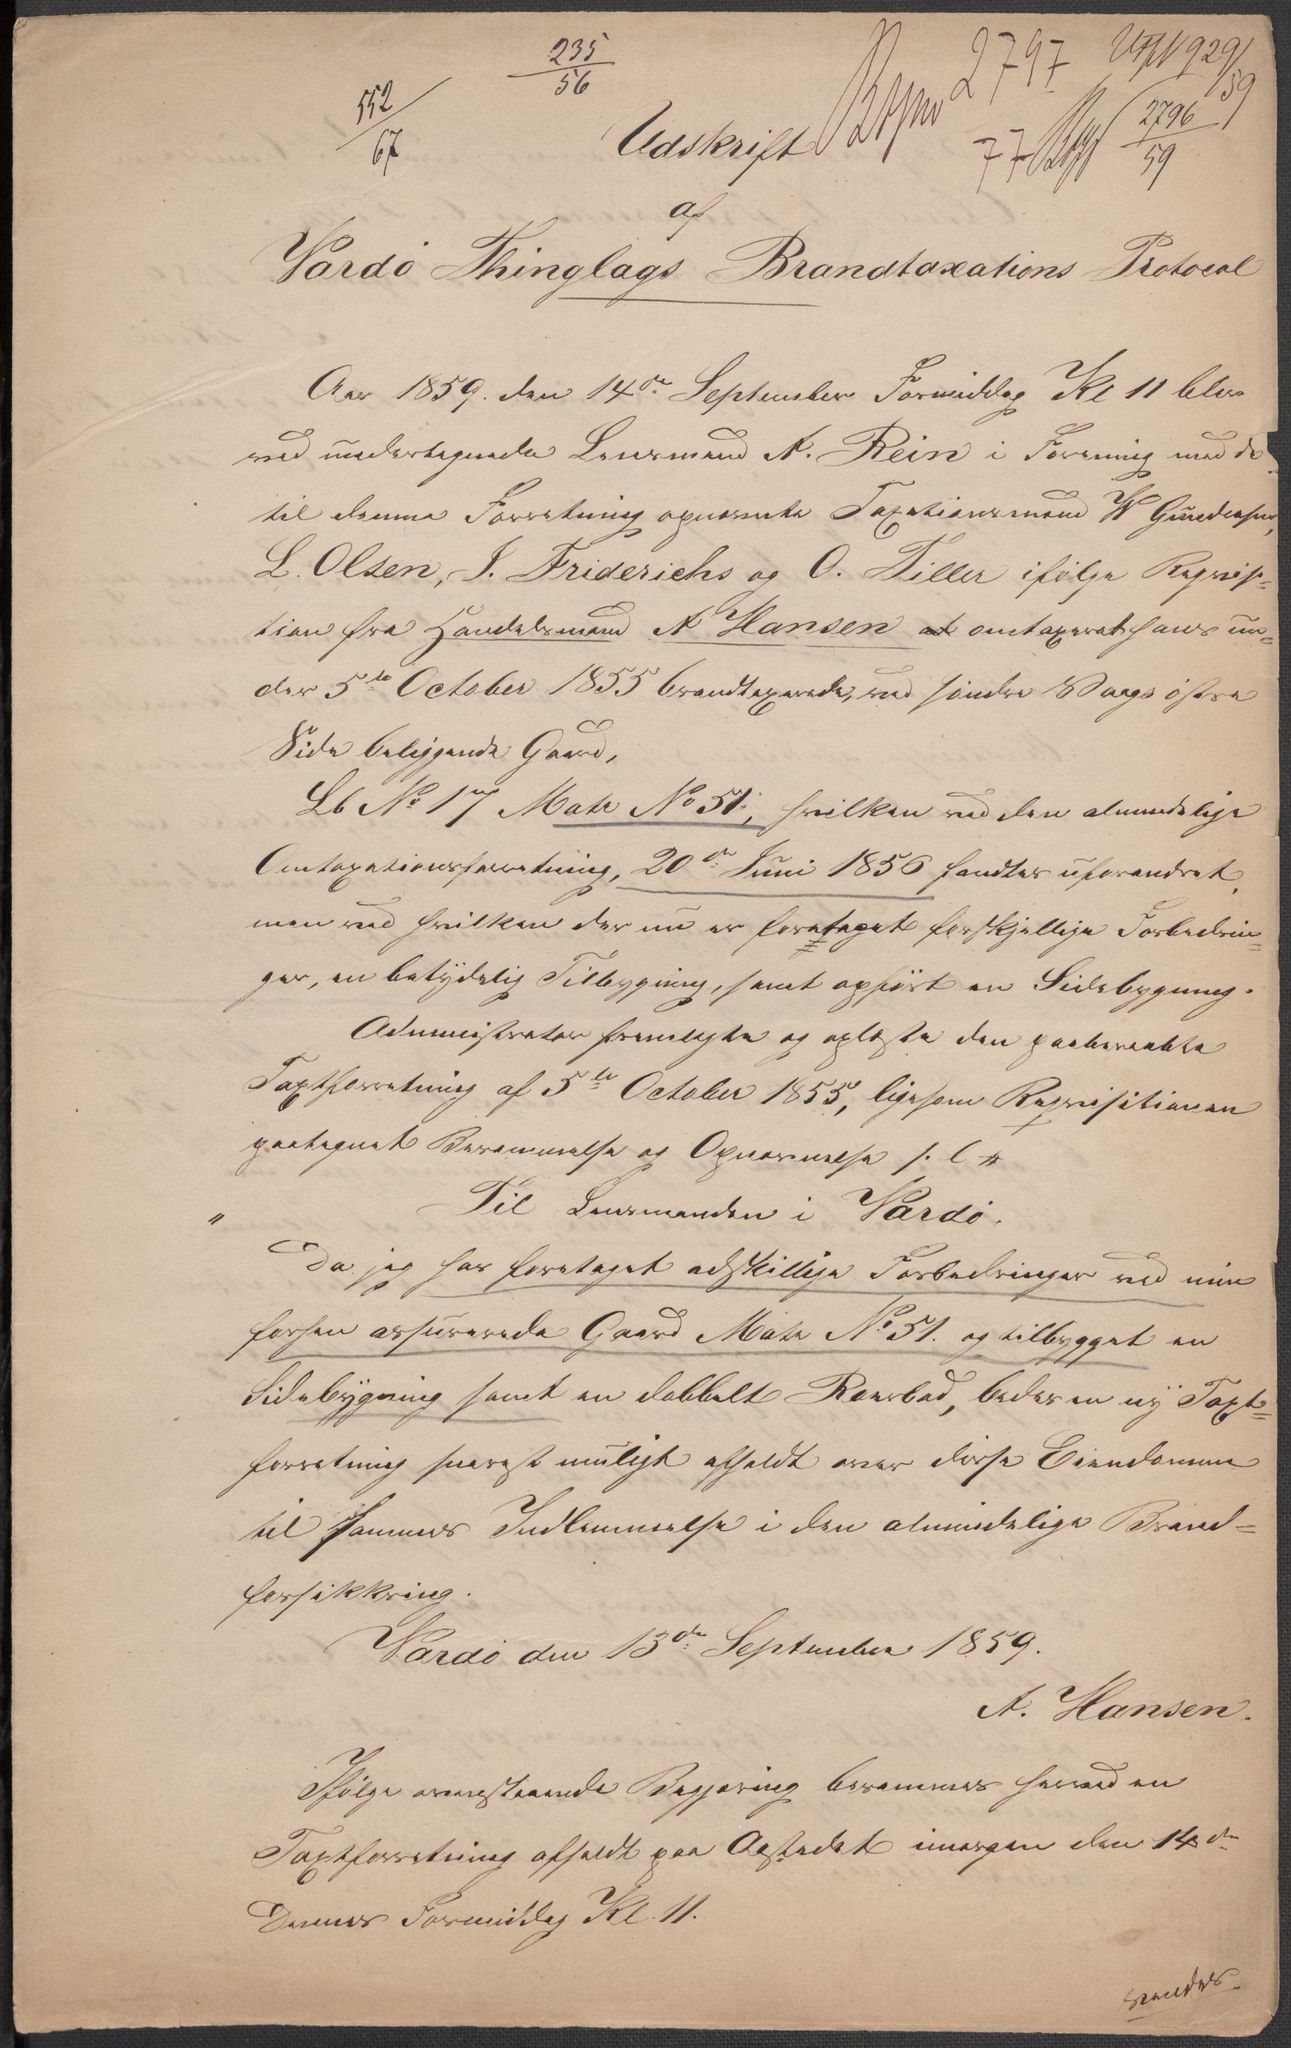 235
56
552
67
2797
929
59
77
2796
59
Udskrift
af
Vardö Thinglags Brandtaxations Protocol
Aar 1859. den 14de September Formiddag Kl 11 blev
ved undertegnede Lensmand A. Rein i Forening med de
til denne Forretning opnævnte Taxationsmænd W Gundersen,
L. Olsen, J. Friderichs og O. Tiller ifølge Reqvisi-
tion fra Handelsmand A Hansen at omtaxeret hans un-
der 5te October 1855 brandtaxerede, ved søndre Vaags østre
Side beliggende Gaard,
Lb No 17 Matr No 51, hvilken ved den almindelige
Omtaxationsforretning, 20de Juni 1856 fandtes uforandret,
men ved hvilken der nu er foretaget forskjellige Forbedrin-
ger, en betydelig Tilbygning, samt opført en Sidebygning.
Administrator fremlagte og oplæste den paaberaabte
Taxtforretning af 5te October 1855, ligesom Reqvisitionen
paategnet Berammelse og Opnævnelse s. l "
" Til Lensmanden i Vardö.
Da jeg har foretaget adskillige Forbedringer ved min
forhen assurerede Gaard Matr No 51. og tilbygget en
Sidebygning samt en dobbelt Roerbod, bedes en ny Taxt-
forretning snarest muligt afholdt over disse Eiendomme
til sammes Indlemmelse i den almindelige Brand-
forsikkring.
Vardö den 13de September 1859.
A. Hansen.
Ifølge ovenstaaende Begjæring berammes herved en
Taxtforretning afholdt paa Aastedet imorgen den 14de
Dennes Formiddag Kl. 11.